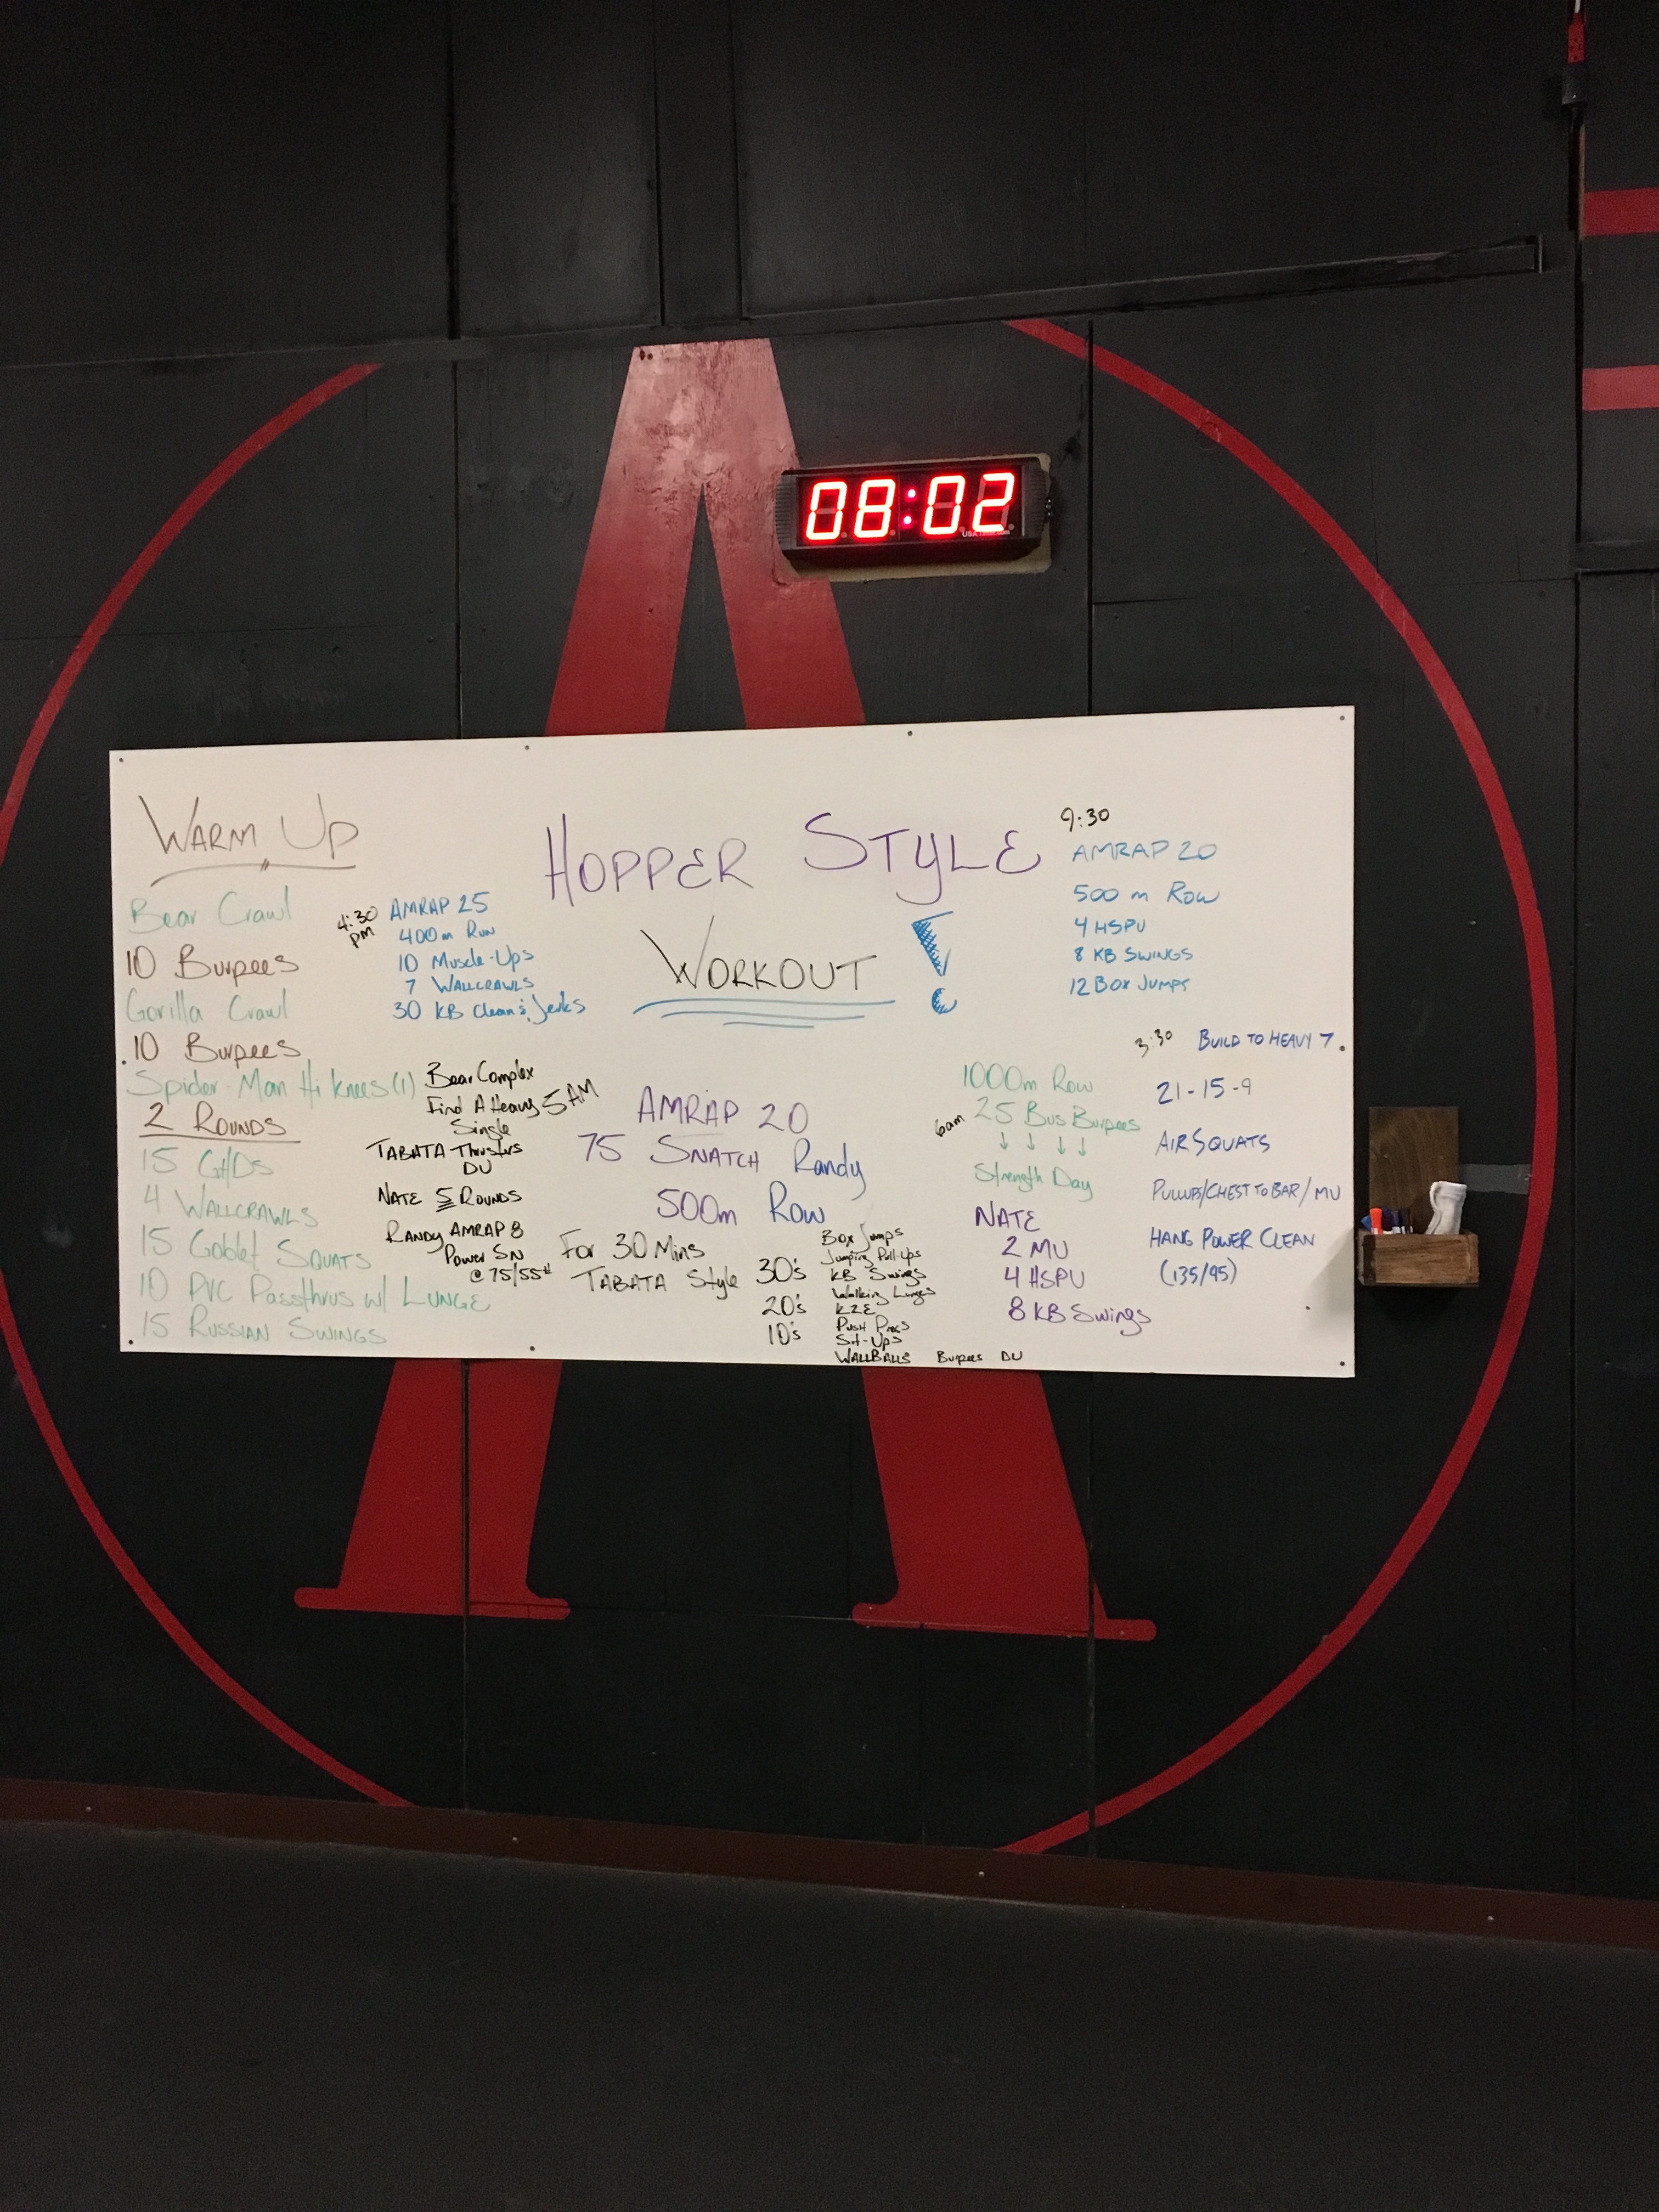 08:02
WARM UP
Bear Crawl
10 Burpees
Gorilla Crawl
10 Burpees
Spider-Man Hi knees (1)
2 ROUNDS
15 GHDs
4 WALLCRAWLS
15 Goblet SQUATS
10 PVC Passthrus w/ LUNGE
15 RUSSIAN SWINGS
4:30 pm
AMRAP 25
400m RUN
10 Muscle-Ups
7 WALLCRAWLS
30 KB Clean & Jerks
Bear Complex
Find A Heavy 5AM
Single
TABATA Thrusters
DU
NATE 5 ROUNDS
RANDY AMRAP 8
Power SN
@ 75/55#
HOPPER STYLE
WORKOUT !
AMRAP 20
75 SNATCH Randy
500m Row
For 30 Mins
TABATA Style
30's
20's
10's
Box Jumps
Jumping Pull-ups
KB Swings
Walking Lunges
K2E
PUSH Press
Sit-Ups
WALLBALLS Burpees DU
9:30
AMRAP 20
500 m Row
4 HSPU
8 KB SWINGS
12 BOX JUMPS
1000m Row
6am 25 Bus Burpees
↓ ↓ ↓ ↓
Strength Day
NATE
2 MU
4 HSPU
8 KB Swings
3:30 BUILD TO HEAVY 7
21-15-9
AIR SQUATS
PULLUPS/CHEST TO BAR/MU
HANG POWER CLEAN
(135/95)